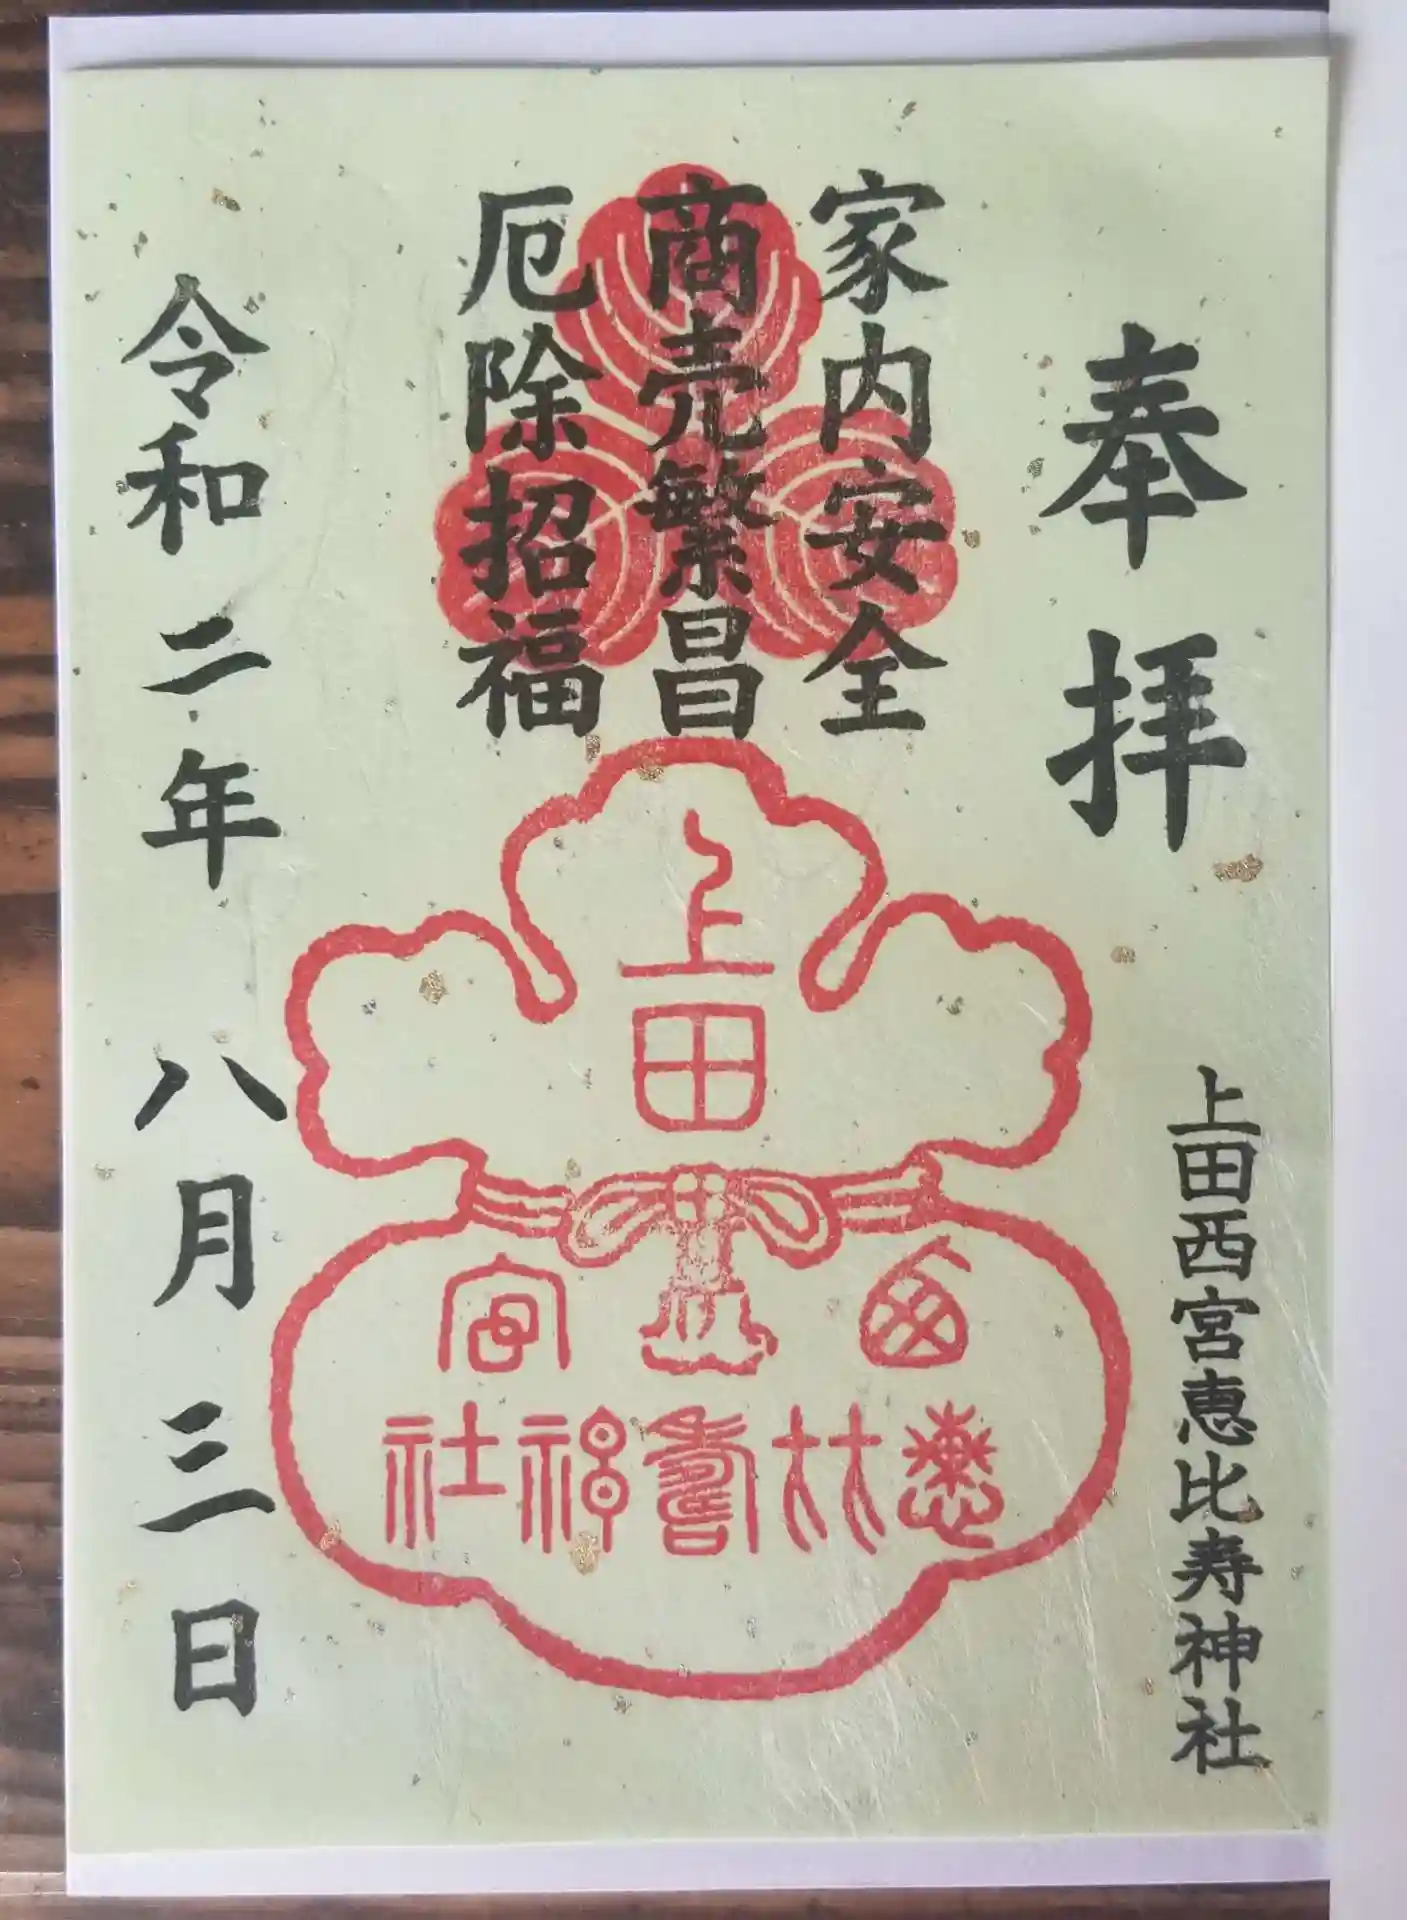 奉拝
上田西宮恵比寿神社
家内安全
商売繁昌
厄除招福
上田
西宮
恵比寿神社
令和二年八月三日